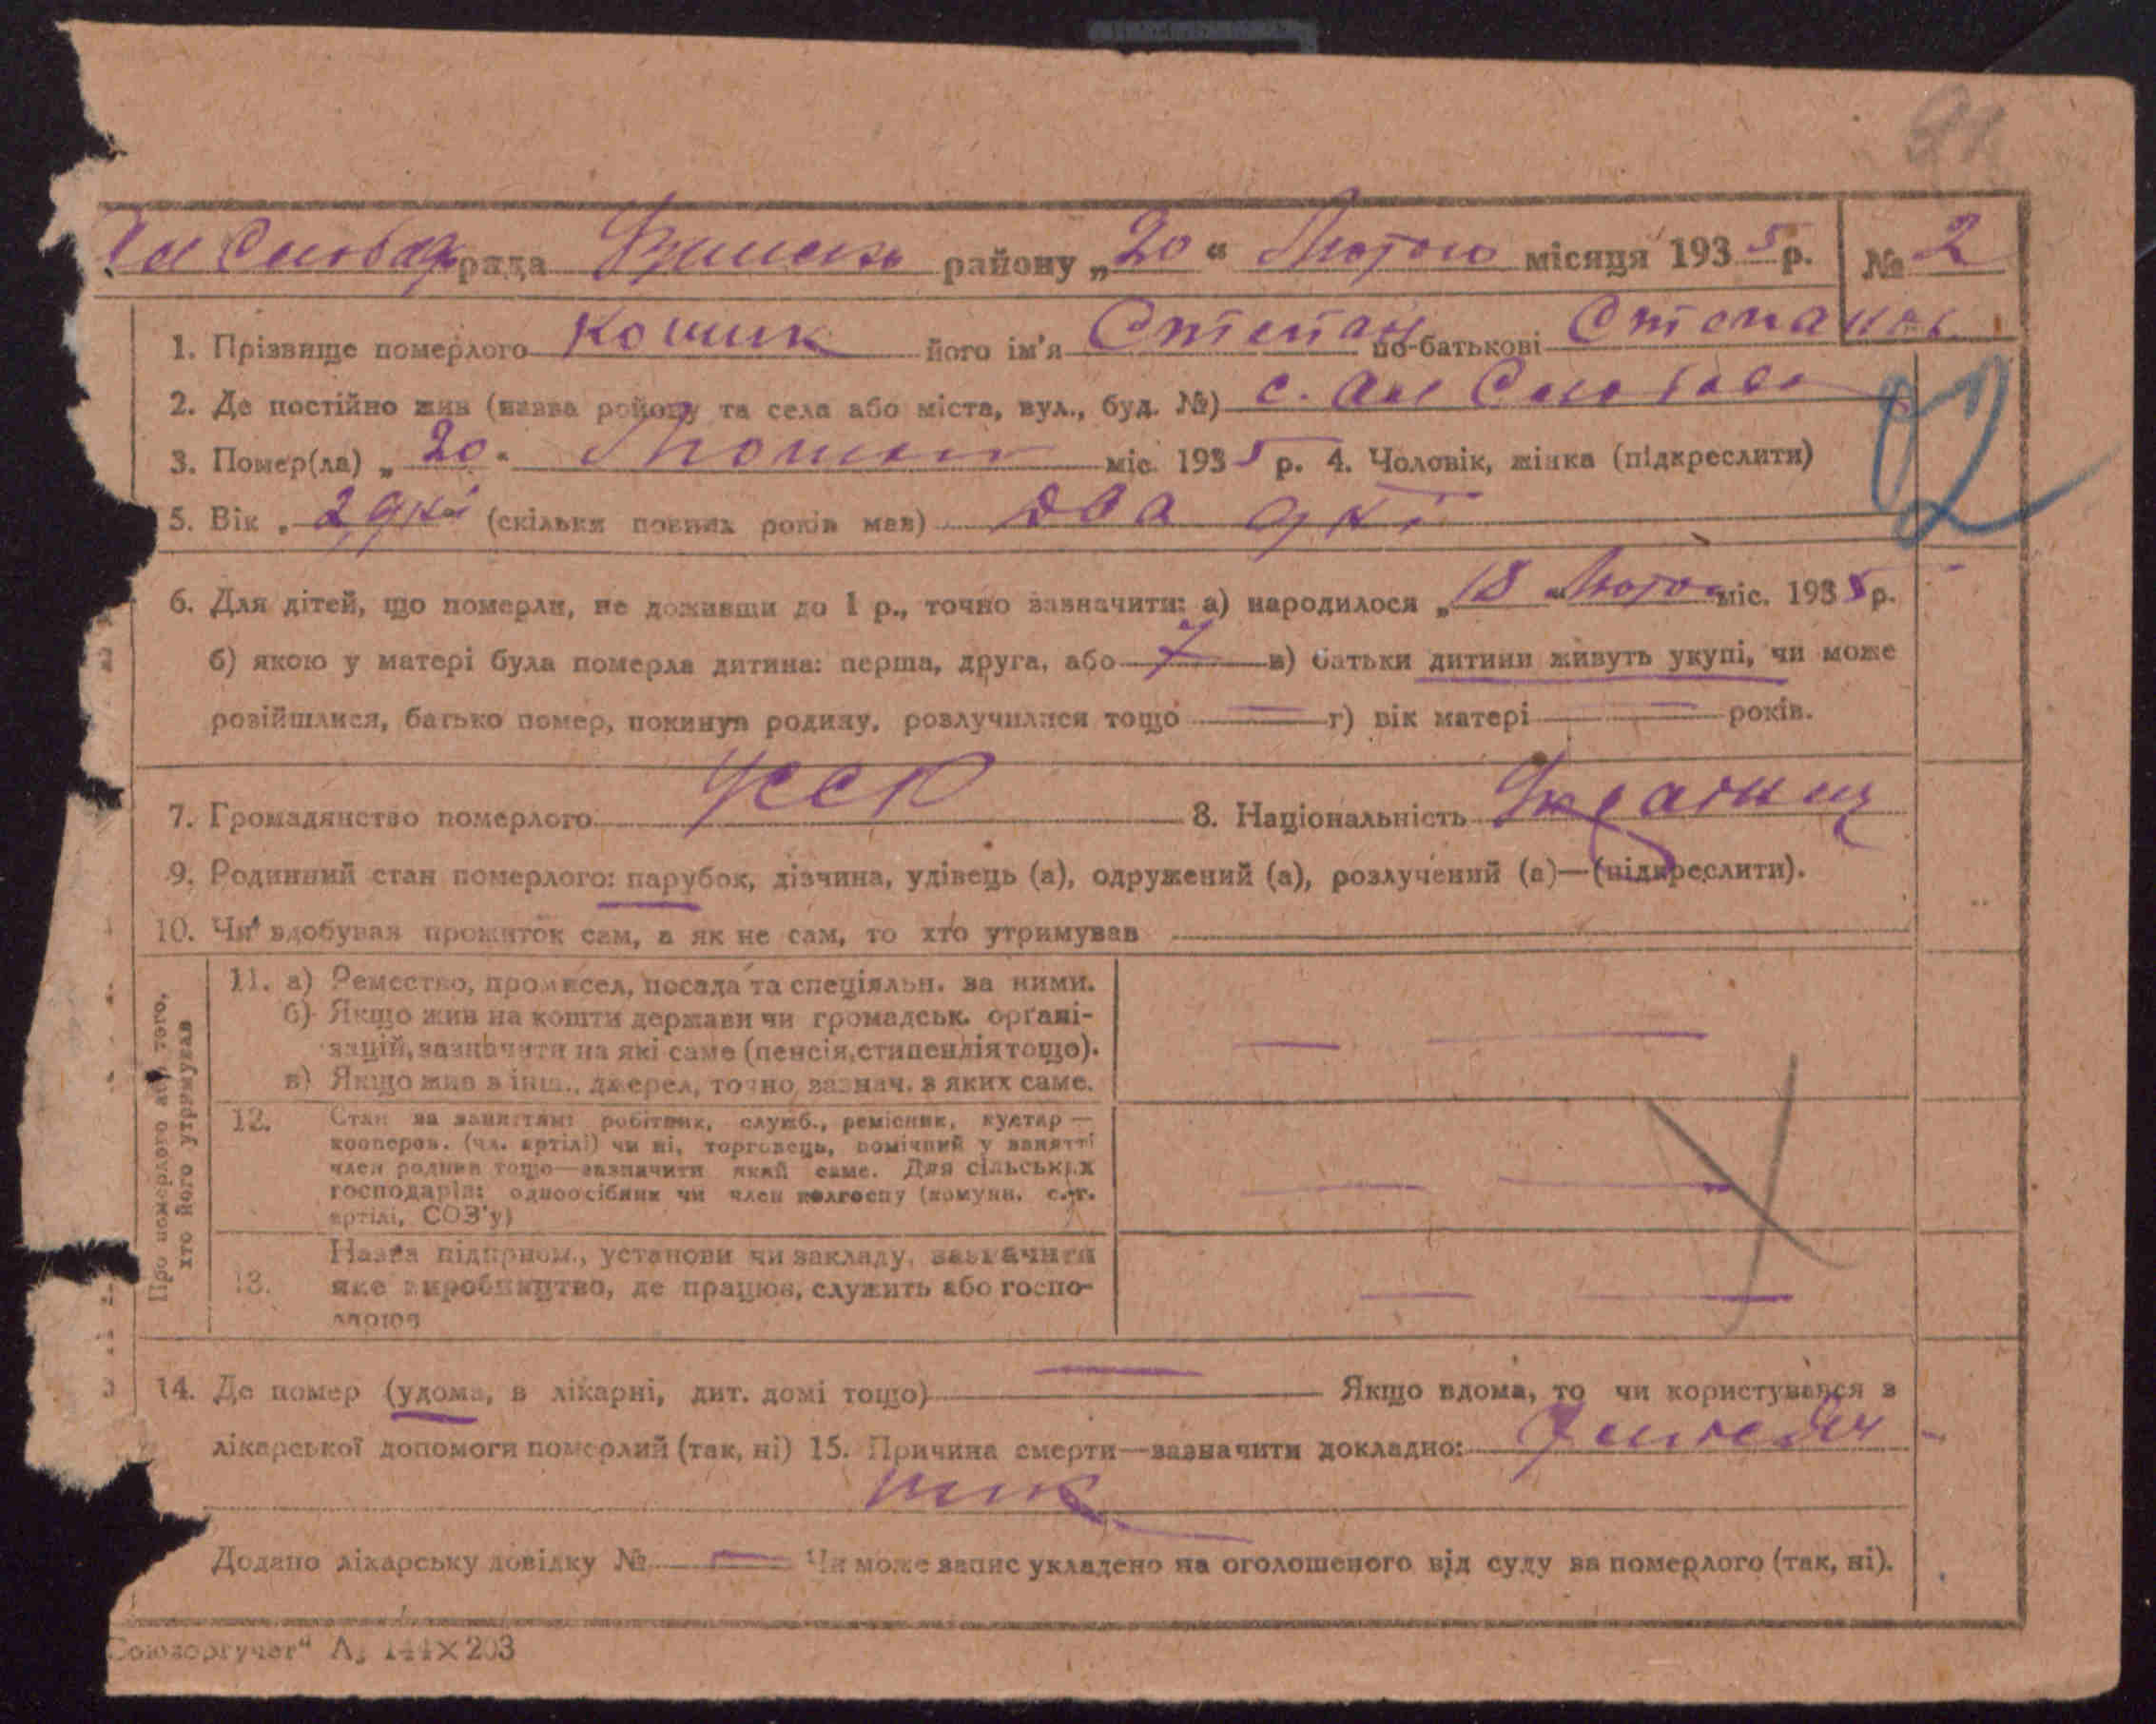 рада району „20“ Лютого місяця 1935 р. № 2
1. Прізвище померлого Кошик його ім'я Степан по-батькові Степанов
2. Де постійно жив (назва району та села або міста, вул., буд. №) с.
3. Помер(ла) „20“ міс. 1935 р. 4. Чоловік, жінка (підкреслити)
5. Вік „2 дні (скільки повних років мав) два дні
6. Для дітей, що померли, не доживши до 1 р., точно зазначити: а) народилося „18 “ Лютого міс. 1935 р.
б) якою у матері була померла дитина: перша, друга, або 7 в) батьки дитини живуть укупі, чи може
розійшлися, батько помер, покинув родину, розлучилися тощо — г) вік матері — років.
7. Громадянство померлого УССР 8. Національність Українц
9. Родинний стан померлого: парубок, дівчина, удівець (а), одружений (а), розлучений (а)—(підкреслити).
10. Чи здобував прожиток сам, а як не сам, то хто утримував
Про померлого або того,
хто його утримував
11. а) Ремество, промисел, посада та спеціяльн. за ними.
б) Якщо жив на кошти держави чи громадськ. органі-
зацій, зазначити на які саме (пенсія, стипендія тощо).
в) Якщо жив з інш., джерел, точно зазнач. з яких саме.
12. Стан за заняттям: робітник, служб., ремісник, кустар —
кооперов. (чл. артілі) чи ні, торговець, помічний у занятті
член родини тощо—зазначити який саме. Для сільських
господарів: одноосібник чи член колгоспу (комуни, с.-г.
артілі, СОЗ'у)
13. Назва підприєм., установи чи закладу, зазначити
яке виробництво, де працюв, служить або госпо-
дарюв
14. Де помер (удома, в лікарні, дит. домі тощо) — Якщо вдома, то чи користувався з
лікарської допомоги померлий (так, ні) 15. Причина смерти—зазначити докладно:
Додано лікарську довідку № — Чи може запис укладено на оголошеного від суду за померлого (так, ні).
Союзоргучет“ А, 144×203